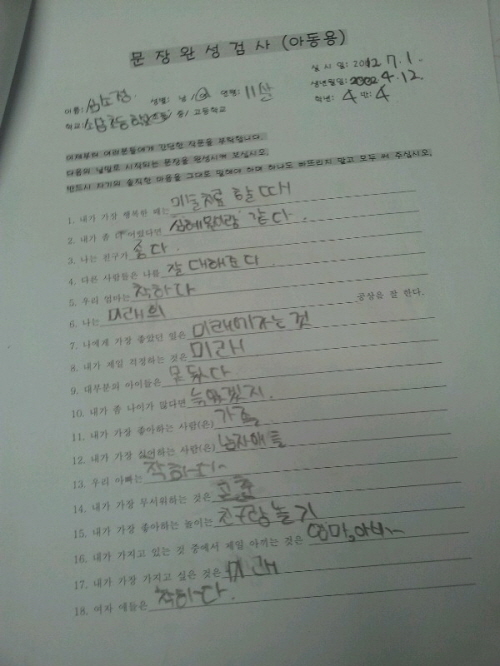 문장완성검사 (아동용)
실 시 일: 2012 7. 1.
이름: 성별: 남/여 연령: 11살 생년월일: 2002 4. 12.
학교: 초등학교/ 중/ 고등학교 학년: 4 반: 4
이제부터 여러분들에게 간단한 작문을 부탁합니다.
다음의 낱말로 시작되는 문장을 완성시켜 보십시오.
반드시 자기의 솔직한 마음을 그대로 말해야 하며 하나도 빠뜨리지 말고 모두 써 주십시오.
1. 내가 가장 행복한 때는 미술치료 할 때
2. 내가 좀 더 어렸다면 같다.
3. 나는 친구가 좋다.
4. 다른 사람들은 나를 잘 대해준다
5. 우리 엄마는 착하다
6. 나는 미래의 공상을 잘 한다.
7. 나에게 가장 좋았던 일은 미래에 가는 것
8. 내가 제일 걱정하는 것은 미래
9. 대부분의 아이들은 못됬다
10. 내가 좀 나이가 많다면
11. 내가 가장 좋아하는 사람(은) 가족
12. 내가 가장 싫어하는 사람(은) 남자애들
13. 우리 아빠는 착하다
14. 내가 가장 무서워하는 것은
15. 내가 가장 좋아하는 놀이는 친구랑 놀기
16. 내가 가지고 있는 것 중에서 제일 아끼는 것은 엄마, 아빠
17. 내가 가장 가지고 싶은 것은 미래
18. 여자 애들은 착하다.